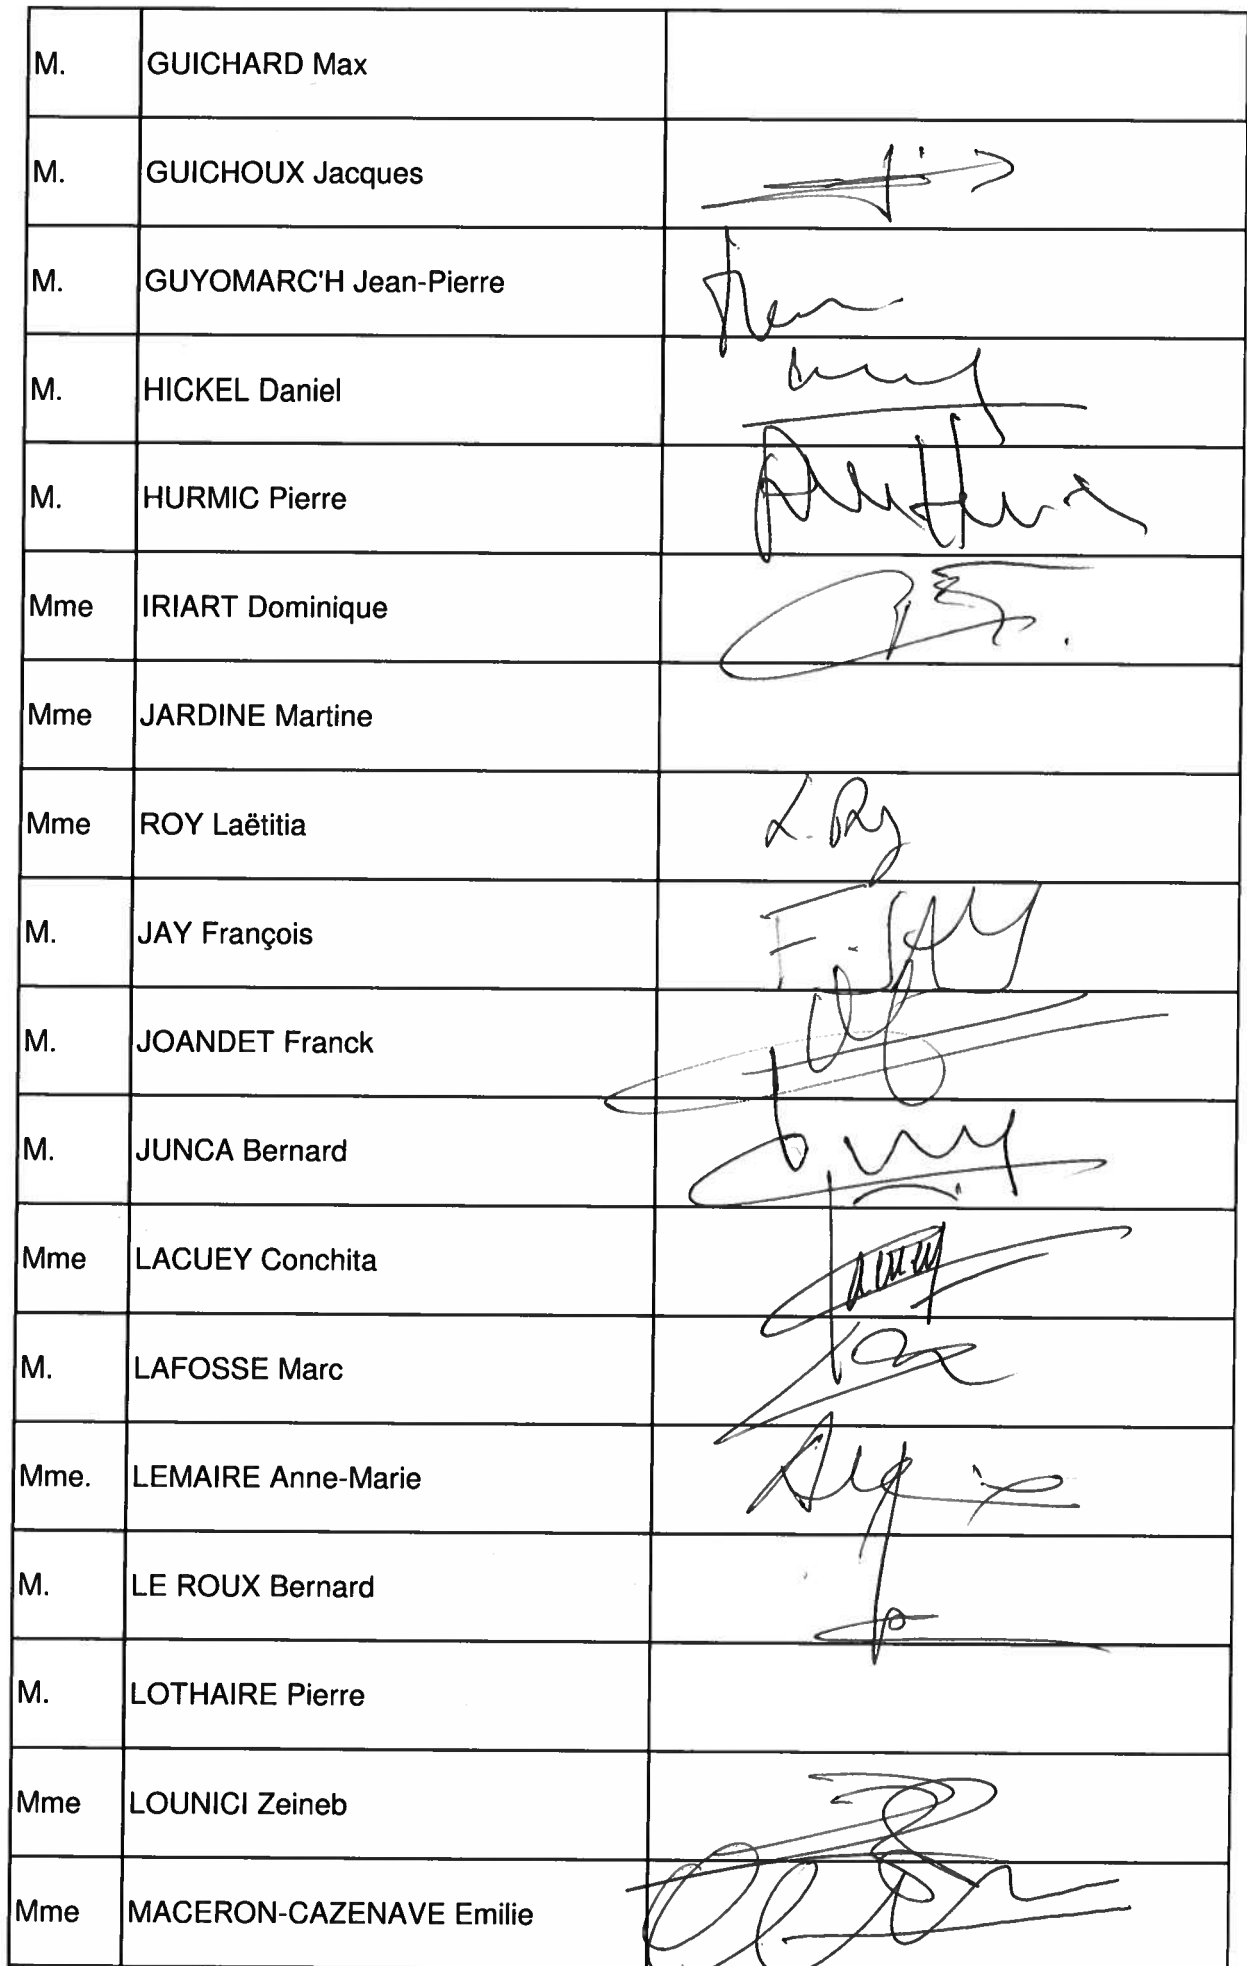 M. GUICHARD Max
M. GUICHOUX Jacques
M. GUYOMARC'H Jean-Pierre
M. HICKEL Daniel
M. HURMIC Pierre
Mme IRIART Dominique
Mme JARDINE Martine
Mme ROY Laëtitia L. Roy
M. JAY François F. JAY
M. JOANDET Franck
M. JUNCA Bernard
Mme LACUEY Conchita
M. LAFOSSE Marc
Mme. LEMAIRE Anne-Marie
M. LE ROUX Bernard
M. LOTHAIRE Pierre
Mme LOUNICI Zeineb
Mme MACERON-CAZENAVE Emilie